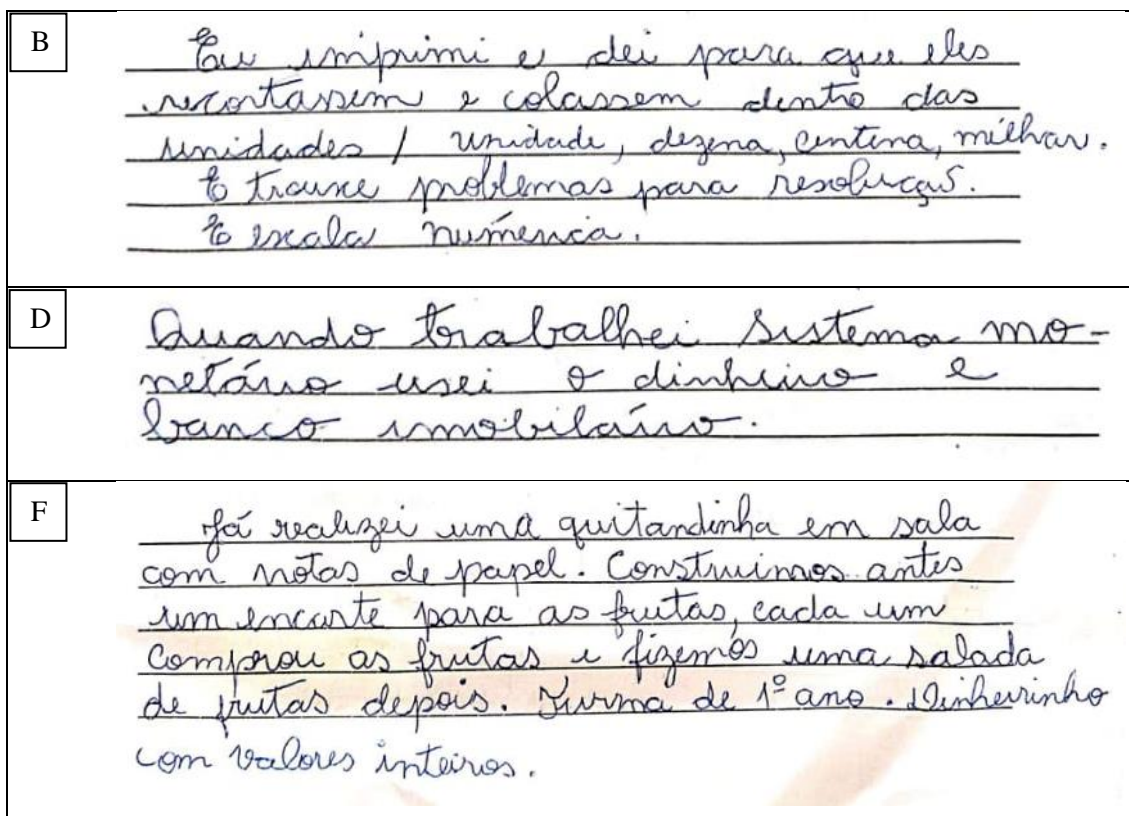 B
Eu imprimi e dei para que eles
recortassem e colassem dentro das
unidades / unidade, dezena, centena, milhar.
E trouxe problemas para resolução.
E escala numérica.
D
Quando trabalhei sistema mo-
netário usei o dinheiro e
banco imobilaírio.
F
Já realizei uma quitandinha em sala
com notas de papel. Construimos antes
um encarte para as frutas, cada um
comprou as frutas e fizemos uma salada
de frutas depois. Turma de 1º ano. Dinheirinho
com valores inteiros.